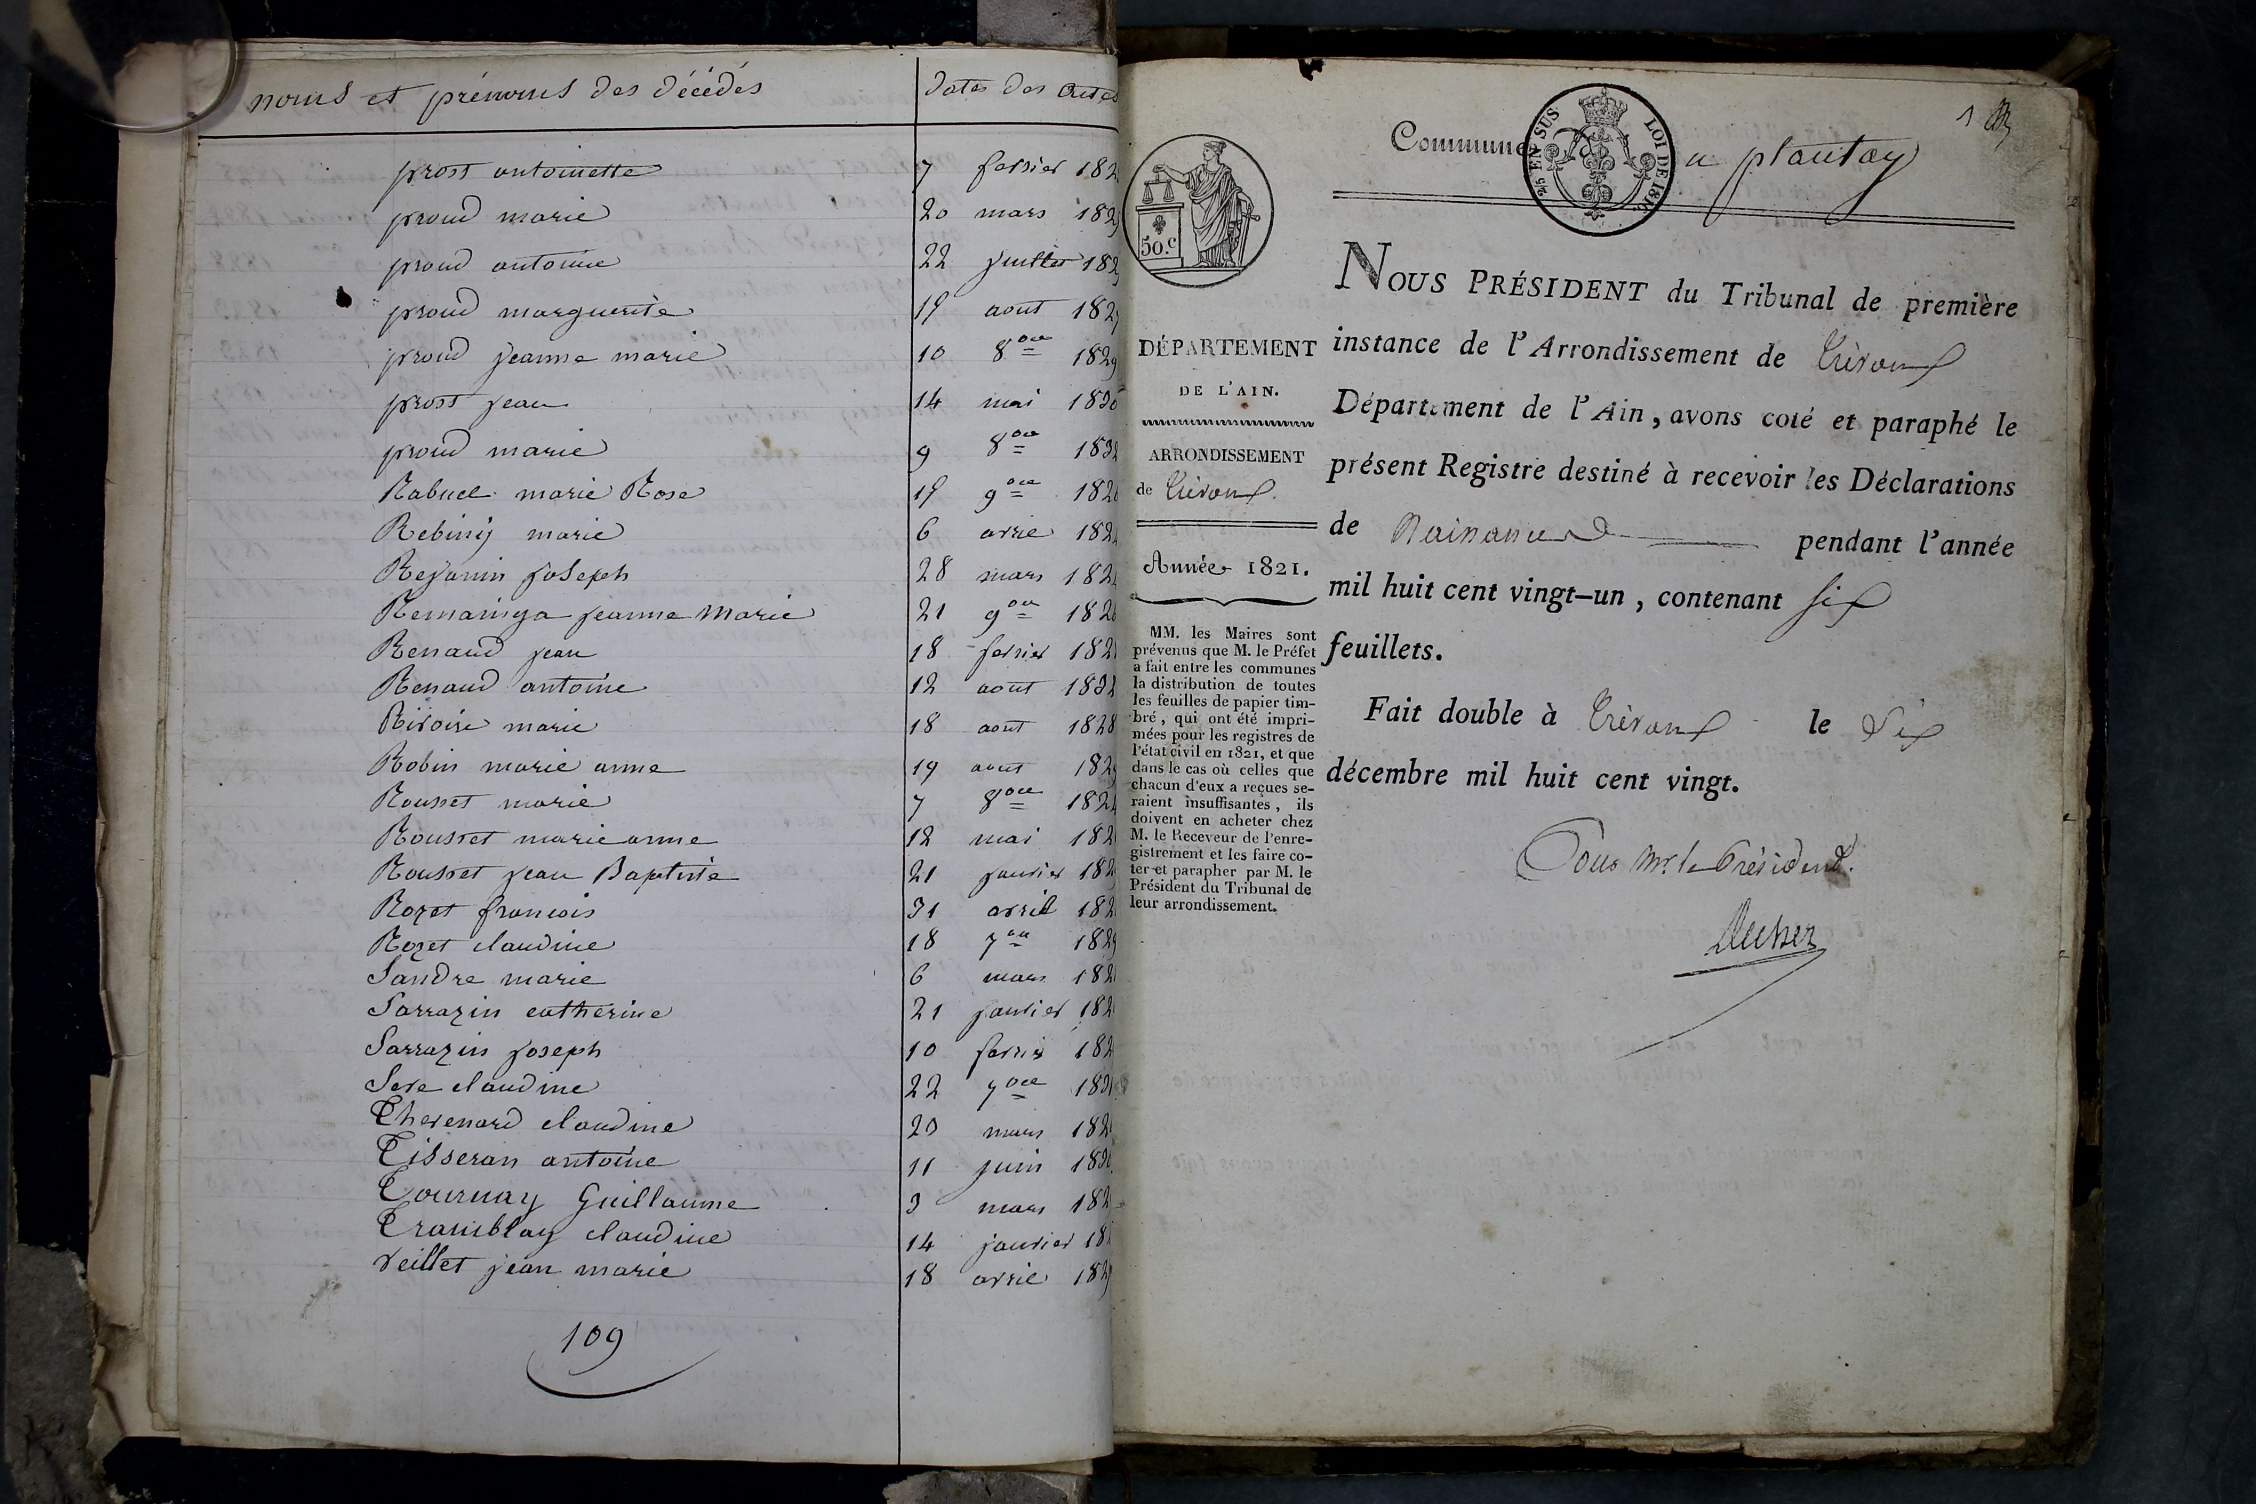 noms et prénoms des décédés
dates des actes
prost antoinette 7 fevrier 182
proud marie 20 mars 1829
proud antoine 22 juillet 182
proud marguerite 15 aout 182
proud jeanne marie 10 8bre 1829
prost jean 14 mai 1830
proud marie 9 8bre 183
Rabuel marie Rose 15 9bre 182
Rebiny marie 6 avril 182
Rejanin joseph 28 mars 182
jeanne Marie 21 9bre 182
Renaud jean 18 fevrier 182
Renaud antoine 12 aout 183
Rivoire marie 18 aout 1828
Robin marie anne 19 aout 182
Rousset marie 7 8bre 182
Rousset marie anne 12 mai 182
Rousset jean Baptiste 21 janvier 182
Rozet francois 31 avril 182
Rozet claudine 18 7bre 1829
Sandre marie 6 mars 182
Sarrazin catherine 21 janvier 182
Sarrazin joseph 10 fevrier 182
Seve claudine 22 7bre 183
Thevenard claudine 20 mars 182
Tisseran antoine 11 juin 183
Tournay Guillaume 3 mars 182
Tramblay claudine 14 janvier 18
veillet jean marie 18 avril 182
109
1
Commune du plantay
EN SUS
LOI DE 181
50.c
DÉPARTEMENT
DE L'AIN.
ARRONDISSEMENT
de Trévoux.
Année 1821.
MM. les Maires sont
prévenus que M. le Préfet
a fait entre les communes
la distribution de toutes
les feuilles de papier tim-
bré, qui ont été impri-
mées pour les registres de
l'état civil en 1821, et que
dans le cas où celles que
chacun d'eux a reçues se-
raient insuffisantes, ils
doivent en acheter chez
M. le Receveur de l'enre-
gistrement et les faire co-
ter et parapher par M. le
Président du Tribunal de
leur arrondissement.
NOUS PRÉSIDENT du Tribunal de première
instance de l'Arrondissement de Trévoux
Département de l'Ain, avons coté et paraphé le
présent Registre destiné à recevoir les Déclarations
de Naissance pendant l'année
mil huit cent vingt-un, contenant six
feuillets.
Fait double à Trévoux le dix
décembre mil huit cent vingt.
Pour Mr. le Président.